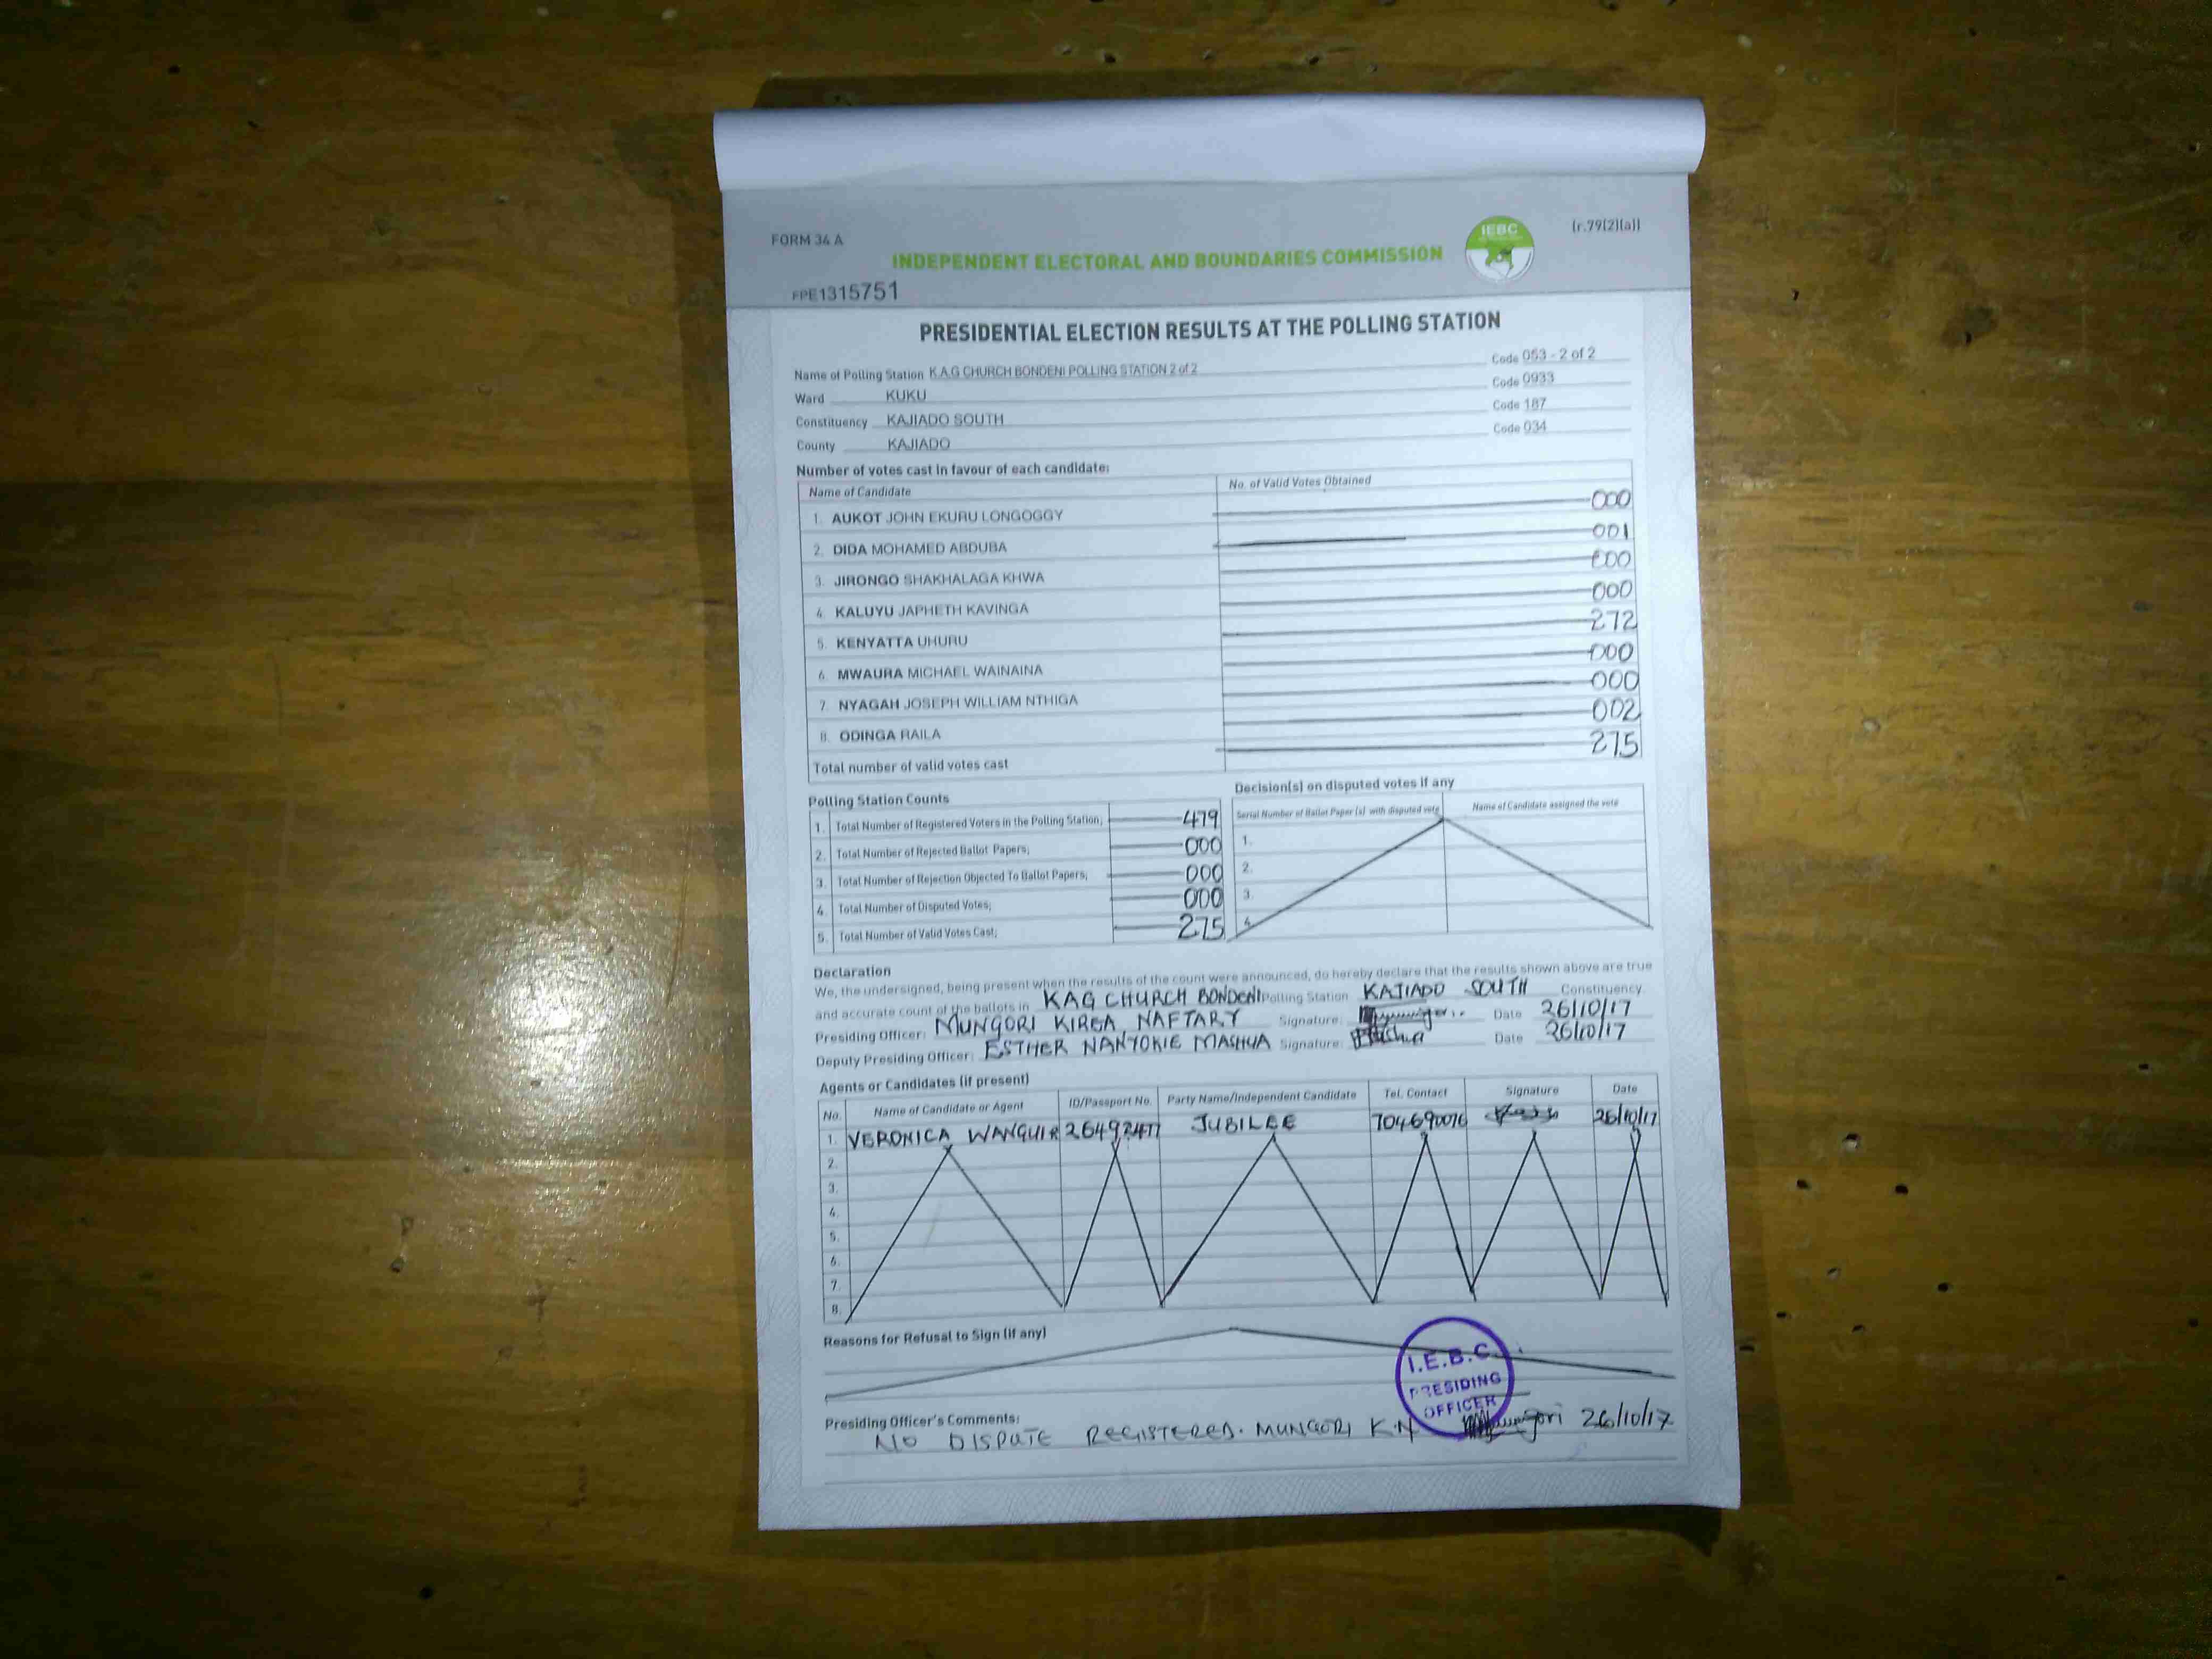 FORM 34 A
(r.79(2)(a))
IEBC
INDEPENDENT ELECTORAL AND BOUNDARIES COMMISSION
FPE1315751
PRESIDENTIAL ELECTION RESULTS AT THE POLLING STATION
Name of Polling Station K.A.G CHURCH BONDENI POLLING STATION 2 of 2 Code 053 - 2 of 2
Ward KUKU Code 0933
Constituency KAJIADO SOUTH Code 187
County KAJIADO Code 034
Number of votes cast in favour of each candidate:
Name of Candidate No. of Valid Votes Obtained
1. AUKOT JOHN EKURU LONGOGGY 000
2. DIDA MOHAMED ABDUBA 001
3. JIRONGO SHAKHALAGA KHWA 000
4. KALUYU JAPHETH KAVINGA 000
5. KENYATTA UHURU 272
6. MWAURA MICHAEL WAINAINA 000
7. NYAGAH JOSEPH WILLIAM NTHIGA 000
8. ODINGA RAILA 002
Total number of valid votes cast 275
Polling Station Counts
1. Total Number of Registered Voters in the Polling Station; 479
2. Total Number of Rejected Ballot Papers; 000
3. Total Number of Rejection Objected To Ballot Papers; 000
4. Total Number of Disputed Votes; 000
5. Total Number of Valid Votes Cast; 275
Decision(s) on disputed votes if any
Serial Number of Ballot Paper (s) with disputed vote Name of Candidate assigned the vote
1.
2.
3.
4.
Declaration
We, the undersigned, being present when the results of the count were announced, do hereby declare that the results shown above are true
and accurate count of the ballots in KAG CHURCH BONDENI Polling Station KAJIADO SOUTH Constituency
Presiding Officer: MUNGORI KIREA NAFTARY Signature: Date 26/10/17
Deputy Presiding Officer: ESTHER NANYOKIE MASHUA Signature: Date 26/10/17
Agents or Candidates (if present)
No. Name of Candidate or Agent ID/Passport No. Party Name/Independent Candidate Tel. Contact Signature Date
1. VERONICA WANGUIR 26492477 JUBILEE 704690076 26/10/17
2.
3.
4.
5.
6.
7.
8.
Reasons for Refusal to Sign (if any)
I.E.B.C.
PRESIDING
OFFICER
Presiding Officer's Comments:
NO DISPUTE REGISTERED. MUNGORI K.N 26/10/17